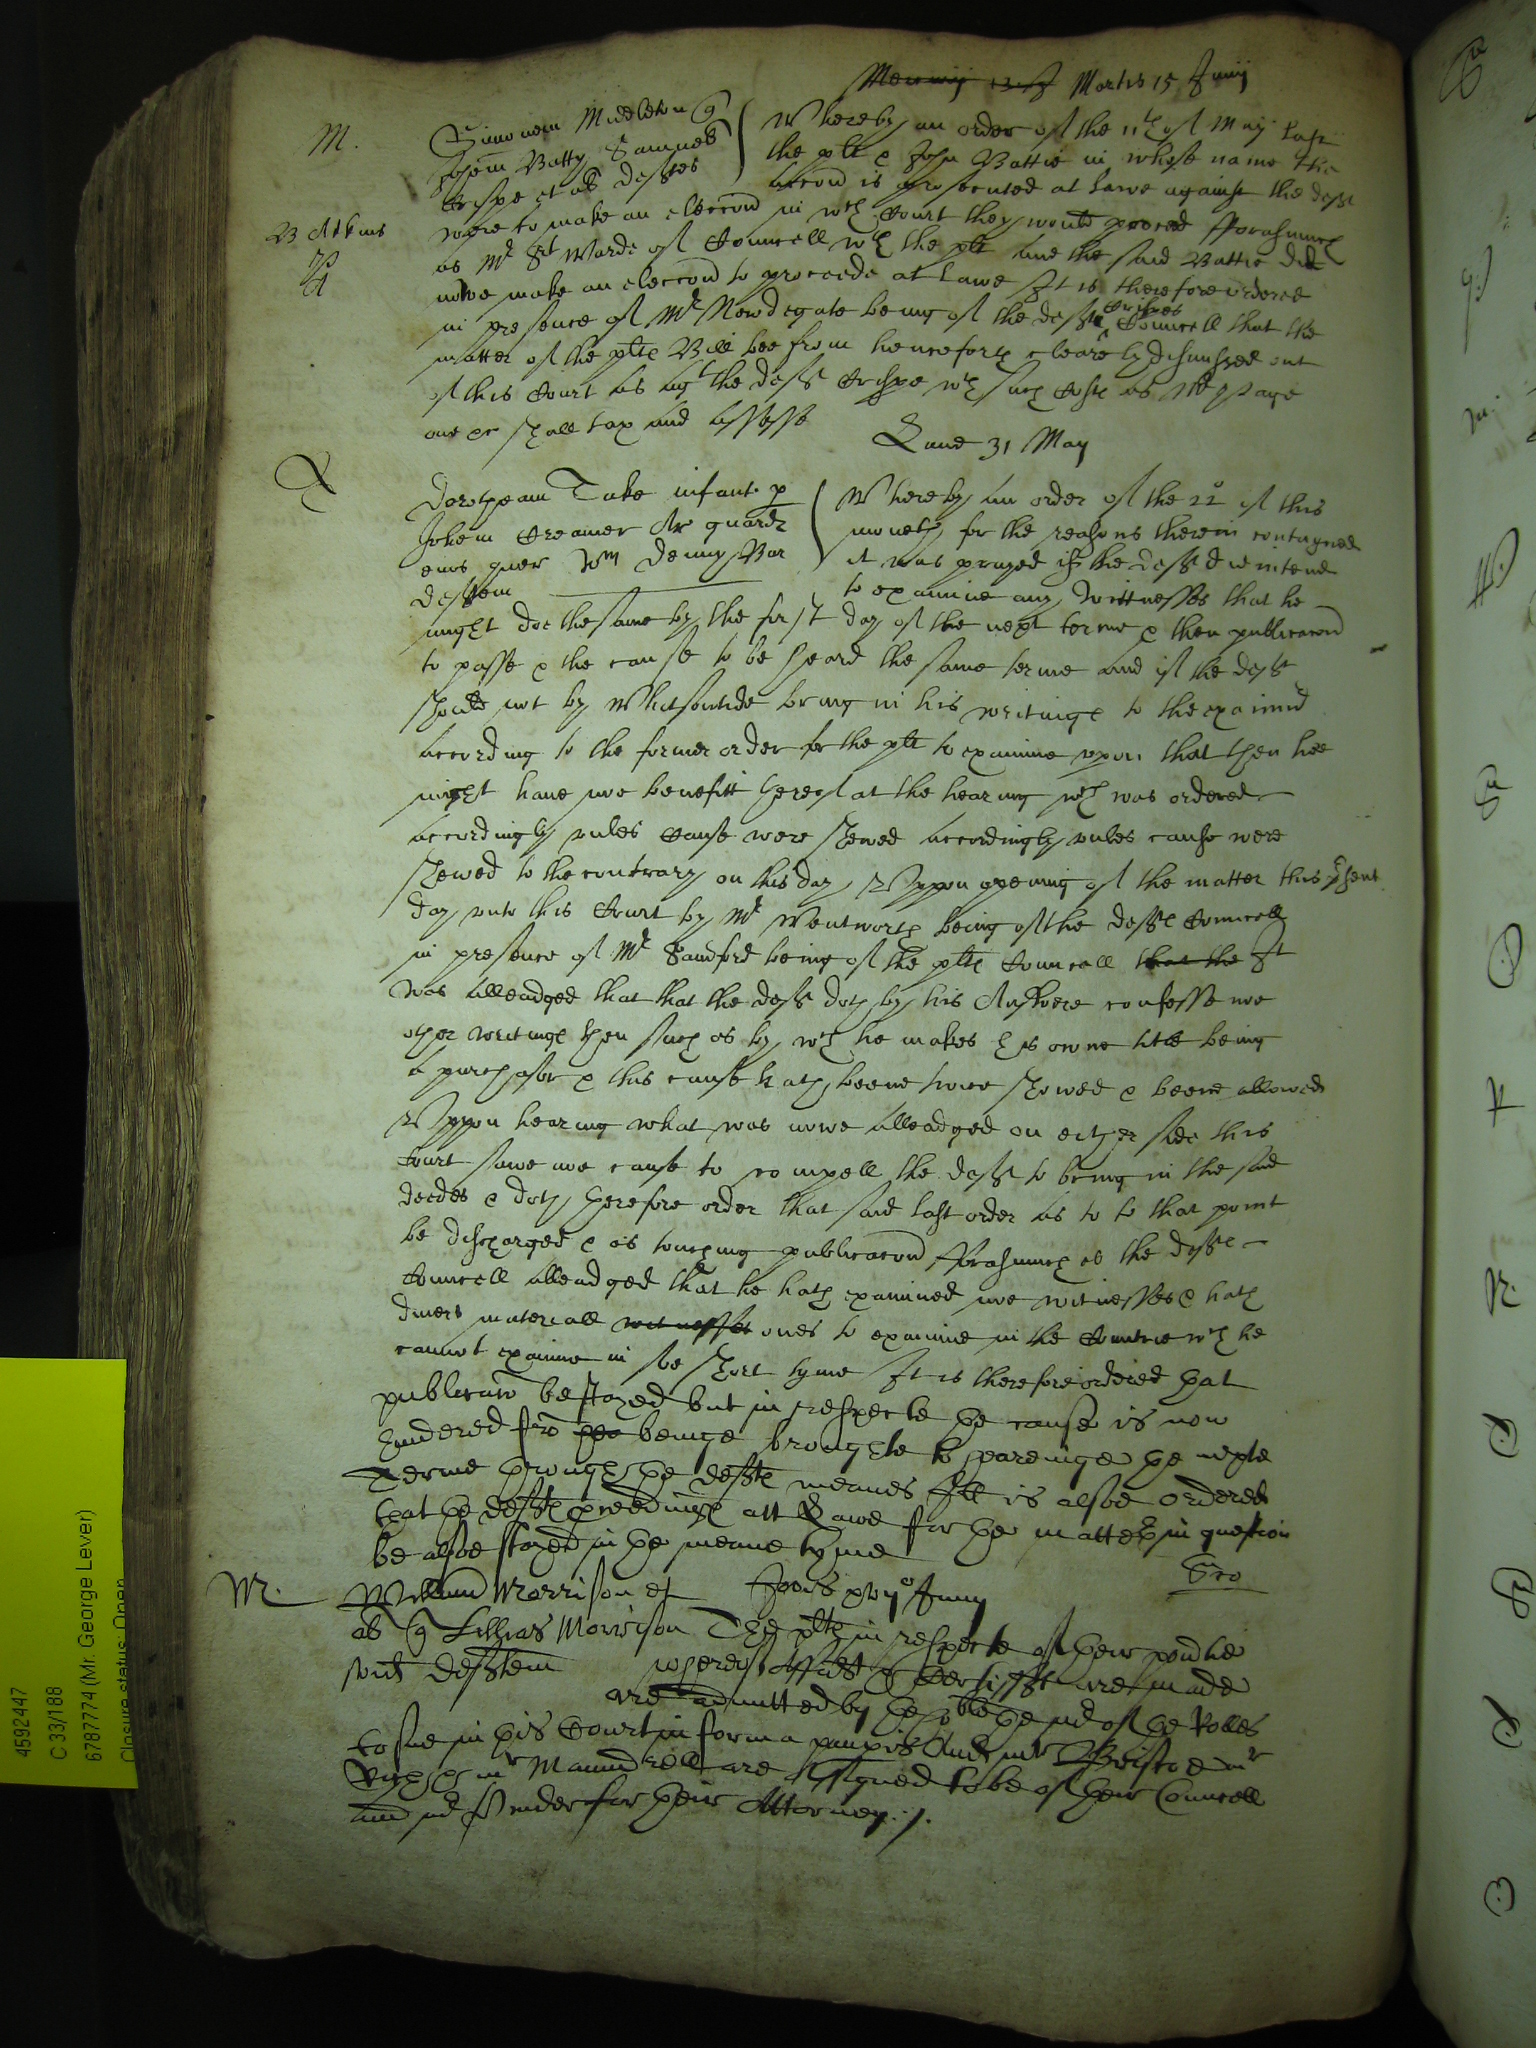 Martis 15 Junij
M.
Simonem Middleton q
Johem Batty Samuel
Crispe et al deftes
Whereby an order of the 11th of May last
the plt & John Battie in whose name the
accon is prosecuted at lawe against the deft
B Atkins
were to make an eleccon in wch Court they would proceed Fforasmuch
as Mr Srt Warde of Councell wth the plt and the said Battie did
nowe make an eleccon to proceede at lawe It is therefore ordered
in presence of Mr Newdegate being of the deft Crispes Councell that the
matter of the plts Bill bee from henceforth clearely dismissed out
of this Court as agt the deft Crispe wth such Costs as Mr Page
one &c shall tax and assesse
Lune 31 May
T
Dorotheam Tuke infant p
Johem Creamer Ar guard
eius quer Wm Denny Bar
deftem
Whereby an order of the 22o of this
moneth for the reasons therein contayned
it was prayed if the deft did intend
to examine any wittnesses that he
might doe the same by the first day of the next terme & then publicacon
to passe & the cause to be heard the same terme and if the deft
should not by Whitsontide bring in his writings to the examinr
according to the former order for the plt to examine upon that then hee
might have noe benefitt thereof at the hearing wch was ordered
accordingly unles cause were shewed accordingly unles cause were
shewed to the contrary on this day Uppon opening of the matter this psent
day unto this Court by Mr Wentworth being of the defts Councell
in presence of Mr Sandford being of the plts Councell that the It
was alleadged that that the deft doth by his Answere confesse noe
other writings then such as by wch he makes his owne title being
a purchasor & this cause hath beene twice shewed & beene allowed
Uppon hearing what was nowe alleadged on either side this
Court sawe noe cause to compell the deft to bring in the said
deedes & doth therefore order that said last order as to to that point
be discharged & as touching publicacon Fforasmuch as the defts
Councell alleadged that he hath examined noe witnesses & hath
divers materiall witnesses ones to examine in the Countrie wch he
cannot examine in soe short tyme It is therefore ordered that
publicacon be stayed but in respecte the cause is now
hindered fro being broughte to heareinge the nexte
Terme through the defts meanes Itt is alsoe ordered
that the defts pceedings att Lawe for the matter in question
be alsoe stayed in the meane tyme
Geo
M.
William Morrison et
al q Lillias Morrison
vid deftem
Jovis xvijo Junij
The plts in respecte of their povtie
whereof Affidts & Certiffts are made
are admitted by the the mr of the Rolles
to sue in this Court in forma paupis And mr Bristoe mr
mr Maundrell are assigned to be of their Councell
and mr Pinder for their Attorney ./.
4592447
C 33/188
6787774 (Mr. George Lever)
Closure status: Open